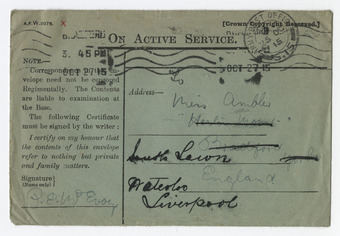 A.F.W.3078. X
[Crown Copyright Reserved.]
ON ACTIVE SERVICE.
3. 45 PM
OCT 27 15
NOTE:—
Correspondence in this envelope need not be censored
Regimentally. The Contents
are liable to examination at
the Base.
The following Certificate
must be signed by the writer:—
I certify on my honour that
the contents of this envelope
refer to nothing but private
and family matters.
Signature
(Name only)
To
Address—
Miss Ambler
South Lawn
England
Waterloo
Liverpool